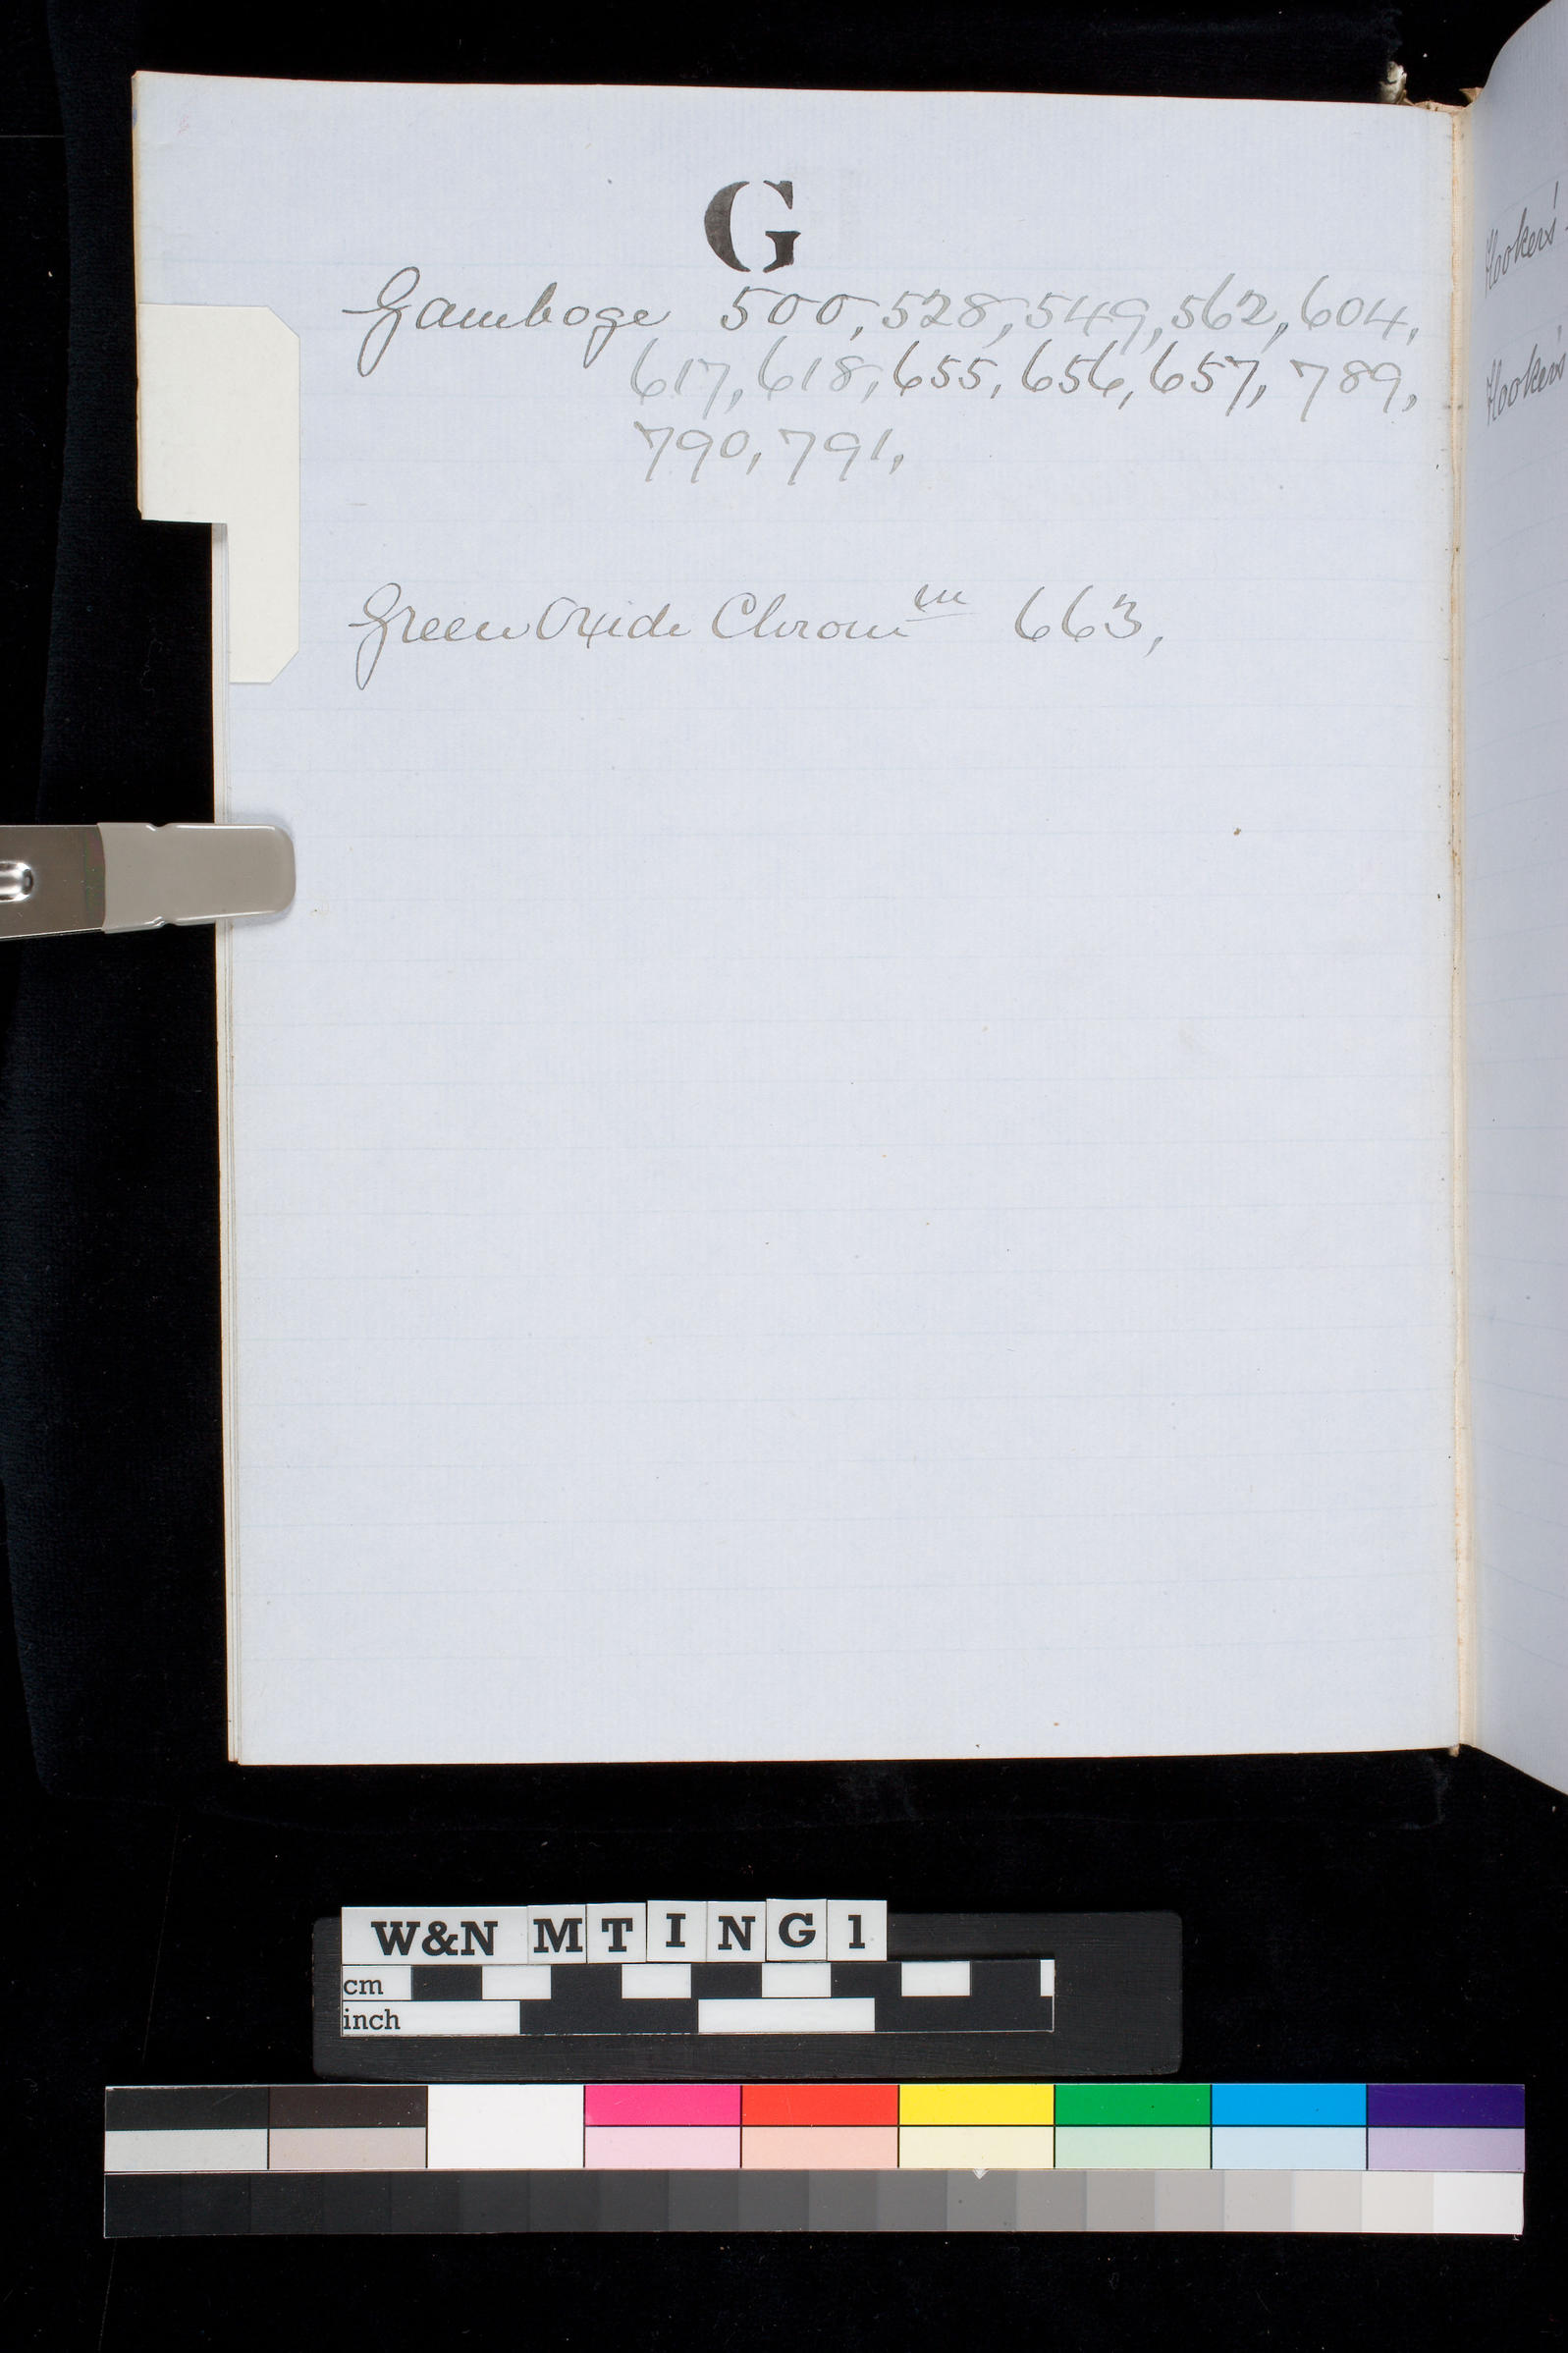 G
Gamboge 500, 528, 549, 562, 604,
617, 618, 655, 656, 657, 789,
790, 791,
Green Oxide Chrom^um 663,
Hooker's
Hooker's
W&N MTING1
cm
inch